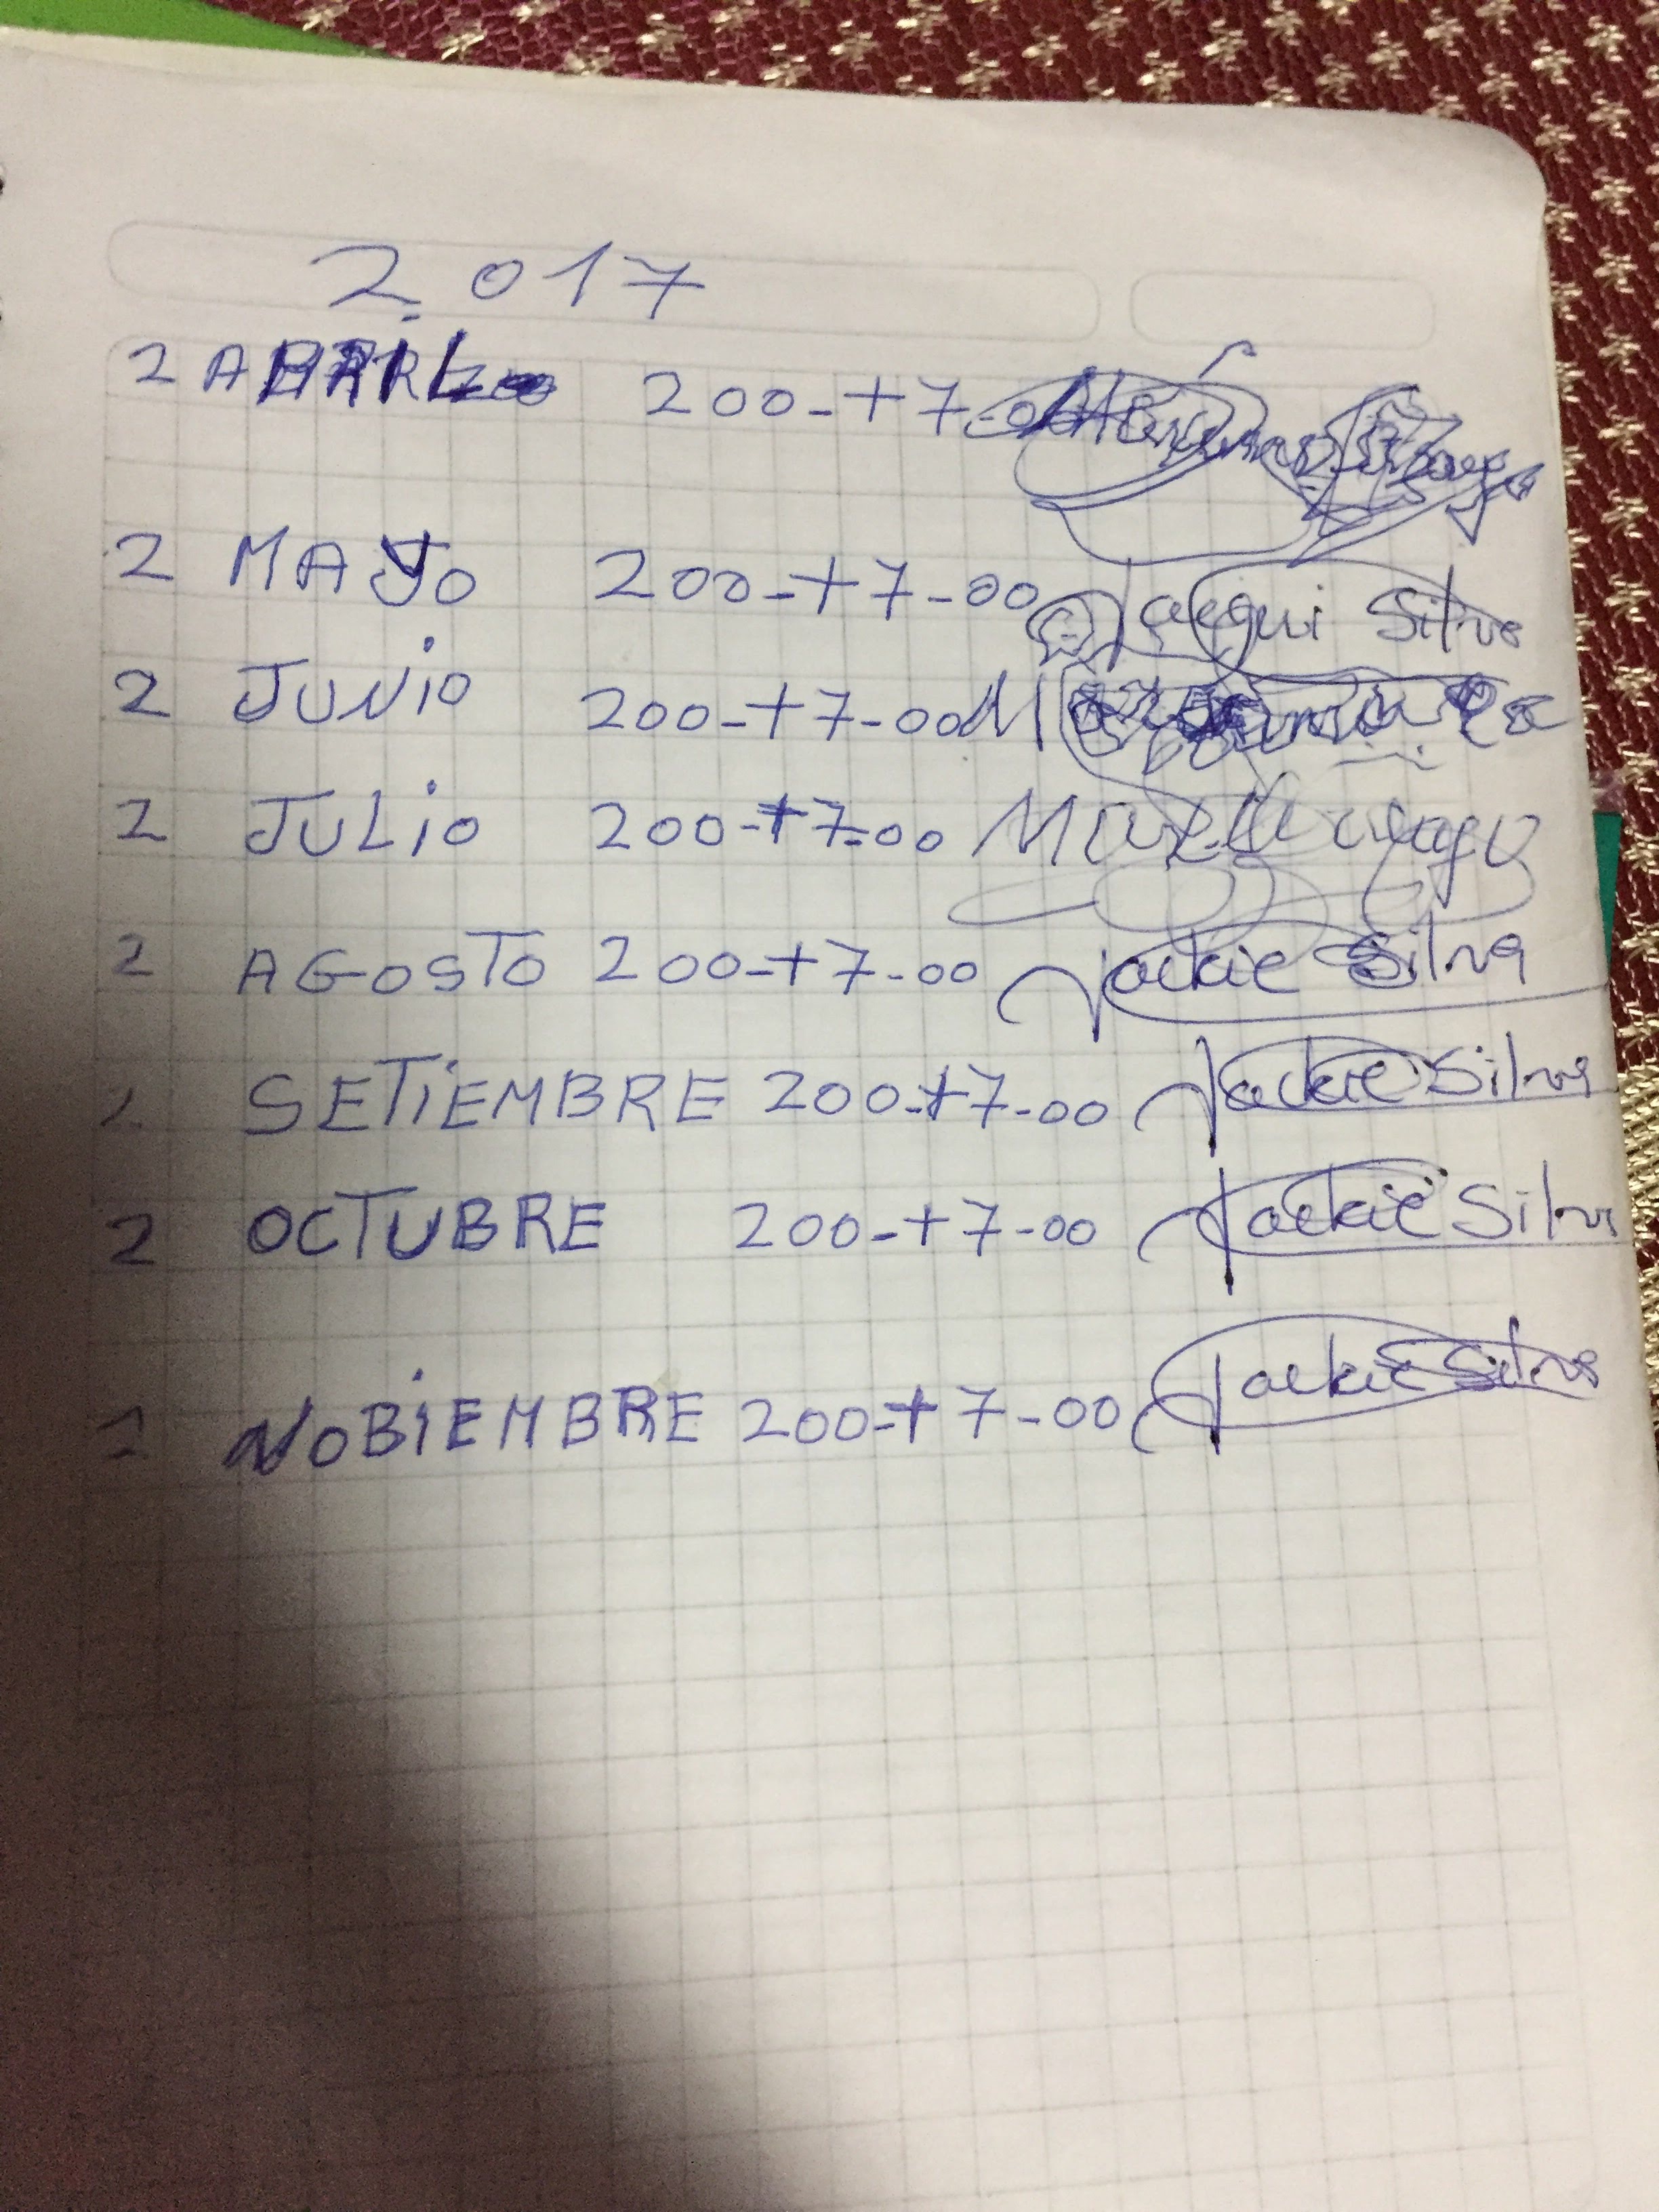 2.017
2 ABRIL 200-+7-00
2 MAYO 200-+7-00 Jacqui Silva
2 JUNIO 200-+7-00
2 JULIO 200-+7-00
2 AGOSTO 200-+7-00 Jackie Silva
2 SETIEMBRE 200-+7-00 Jackie Silva
2 OCTUBRE 200-+7-00 Jackie Silva
NOBIEMBRE 200-+7-00 Jackie Silva